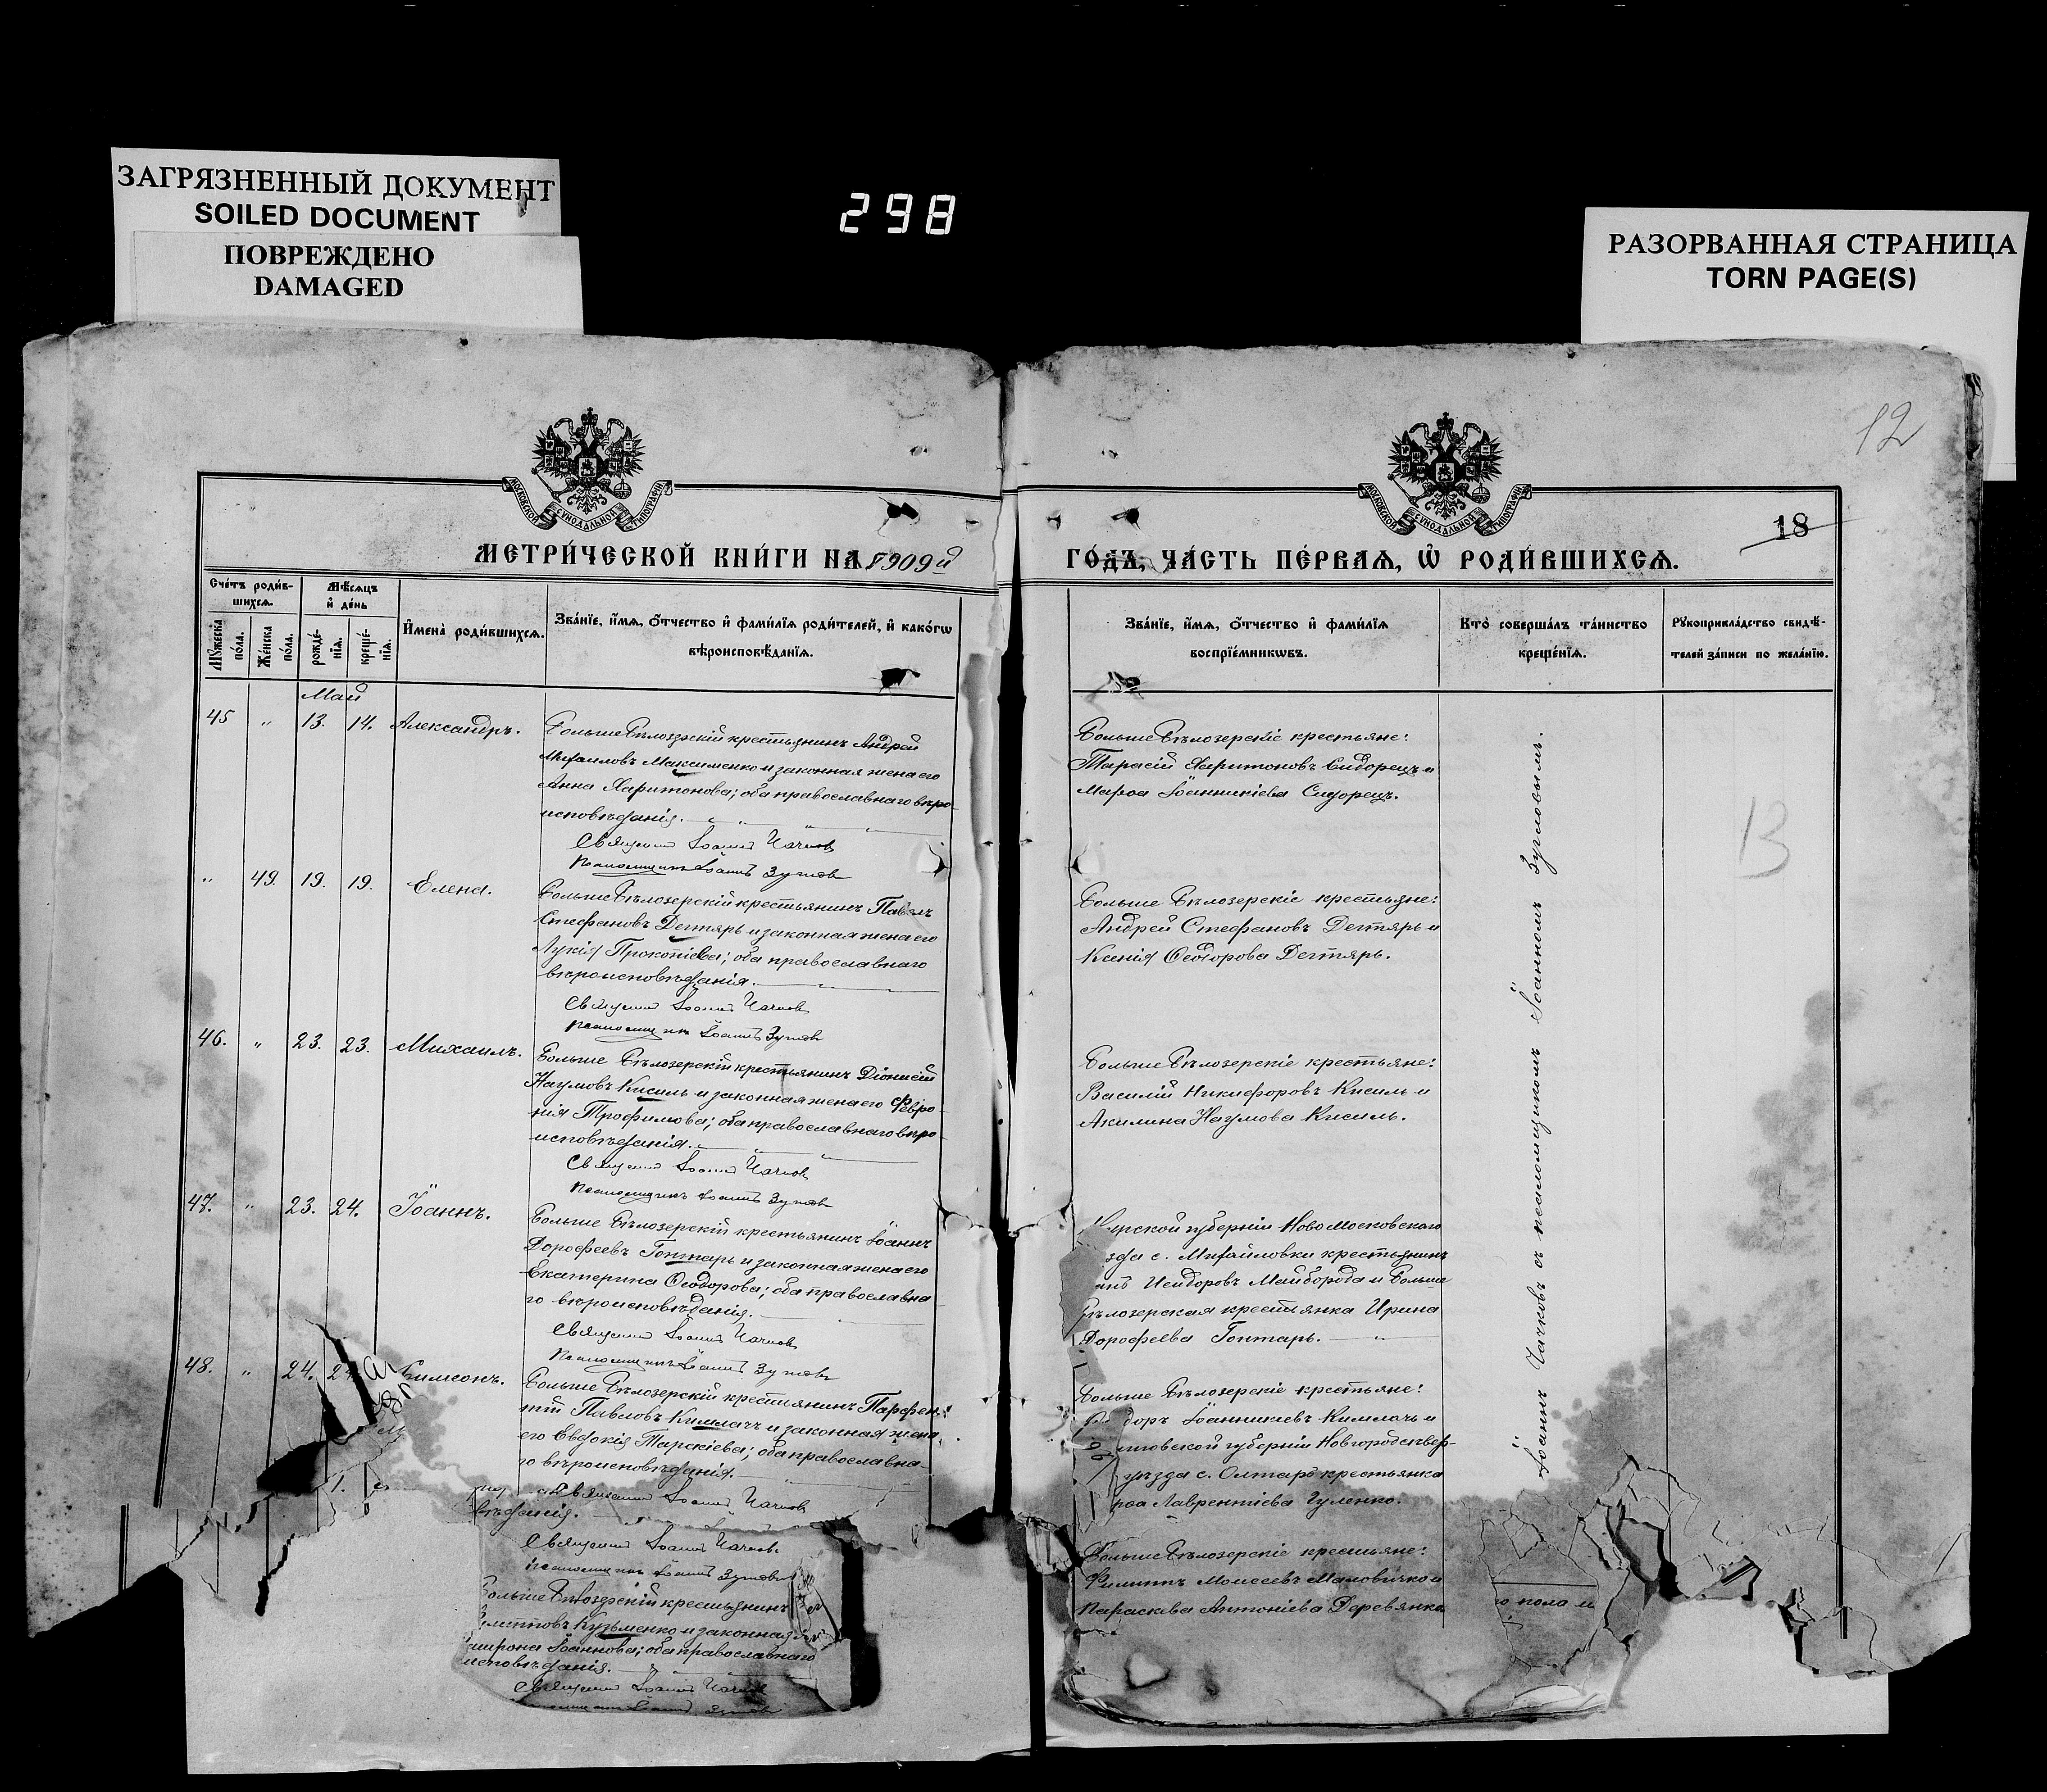 ЗАГРЯЗНЕННЫЙ ДОКУМЕНТ
SOILED DOCUMENT
ПОВРЕЖДЕНО
DAMAGED
298
РАЗОРВАННАЯ СТРАНИЦА
TORN PAGE(S)
12
МОСКОВСКОЙ СУНОДАЛЬНОЙ ТИПОГРАФІИ
МОСКОВСКОЙ СУНОДАЛЬНОЙ ТИПОГРАФІИ
18
МЕТРИ́ЧЕСКОЙ КНИ́ГИ НА 1909й
ГО́ДЪ, ЧА́СТЬ ПЕ́РВАѦ, Ѡ҆ РОДИ́ВШИХСѦ.
Сче́тъ роди́в-
шихсѧ.
Мѣ́сѧцъ
и҆ де́нь
Му́жеска по́ла.
Же́нска по́ла.
рожде́-
нїѧ.
креще́-
нїѧ.
И҆мена̀ роди́вшихсѧ.
Зва́нїе, и҆́мѧ, ѻ҆́тчество и҆ фами́лїѧ роди́телей, и҆ како́гѡ
вѣроисповѣ́данїѧ.
Зва́нїе, и҆́мѧ, ѻ҆́тчество и҆ фами́лїѧ
воспрїе́мникѡвъ.
Кто̀ соверша́лъ та́инство
креще́нїѧ.
Рꙋкоприкла́дство свидѣ́-
телей за́писи по жела́нїю.
Май
45 " 13. 14. Александръ.
Больше Бѣлозерскій крестьянинъ Андрей
Михаиловъ Максименко и законная жена его
Анна Харитонова; оба православнаго вѣро-
исповѣданія.
Священник Іоанн Чачков
Псаломщикъ Іоаннъ Зуглов
Больше Бѣлозерскіе крестьяне:
Тарасій Харитоновъ Сидорецъ и
Марѳа Іоанникіева Сидорецъ.
" 49. 19. 19. Елена.
Больше Бѣлозерскій крестьянинъ Павелъ
Стефановъ Дегтярь и законная жена его
Лукія Прокопіева; оба православнаго
вѣроисповѣданія.
Священник Іоанн Чачков
Псаломщикъ Іоаннъ Зуглов
Больше Бѣлозерскіе крестьяне:
Андрей Стефановъ Дегтярь и
Ксенія Ѳеодорова Дегтярь.
46. " 23. 23. Михаилъ.
Больше Бѣлозерскій крестьянинъ Діонисій
Наумовъ Кисиль и законная жена его Февро-
нія Трофимова; оба православнаго вѣро-
исповѣданія.
Священник Іоанн Чачков
Псаломщикъ Іоаннъ Зуглов
Больше Бѣлозерскіе крестьяне:
Василій Никифоровъ Кисиль и
Акилина Наумова Кисиль.
47. " 23. 24. Іоаннъ.
Больше Бѣлозерскій крестьянинъ Іоаннъ
Дорофеевъ Гонтарь и законная жена его
Екатерина Ѳеодорова; оба православна-
го вѣроисповѣданія.
Священник Іоанн Чачков
Псаломщикъ Іоаннъ Зуглов
губерніи Новомосковскаго
с. Михайловки крестьянинъ
Исидоровъ Майборода и Больше
Бѣлозерская крестьянка Ирина
Дорофеева Гонтарь.
48. " 24. Симеонъ.
Больше Бѣлозерскій крестьянинъ Парфен-
тій Павловъ Кимлачъ и законная жена
его Евдокія Тарасіева; оба православна-
го вѣроисповѣданія.
Священник Іоанн Чачков
Больше Бѣлозерскіе крестьяне:
Іоанникіевъ Кимлачъ и
губерніи Новгородсѣвер-
уѣзда с. Олтарь крестьянка
Лаврентіева Гуленко.
вѣданія.
Священник Іоанн Чачков
Псаломщикъ Іоаннъ Зуглов
Больше Бѣлозерскій крестьянинъ
Кузьменко и законная
Іоаннова; оба православнаго
исповѣданія.
Священник Іоанн Чачков
Зуглов
Больше Бѣлозерскіе крестьяне:
Филиппъ Моисеевъ Маловичко и
Параскева Антоніева Деревянко
пола и
Іоаннъ Чачковъ съ псаломщикомъ Іоанномъ Зугловымъ.
13